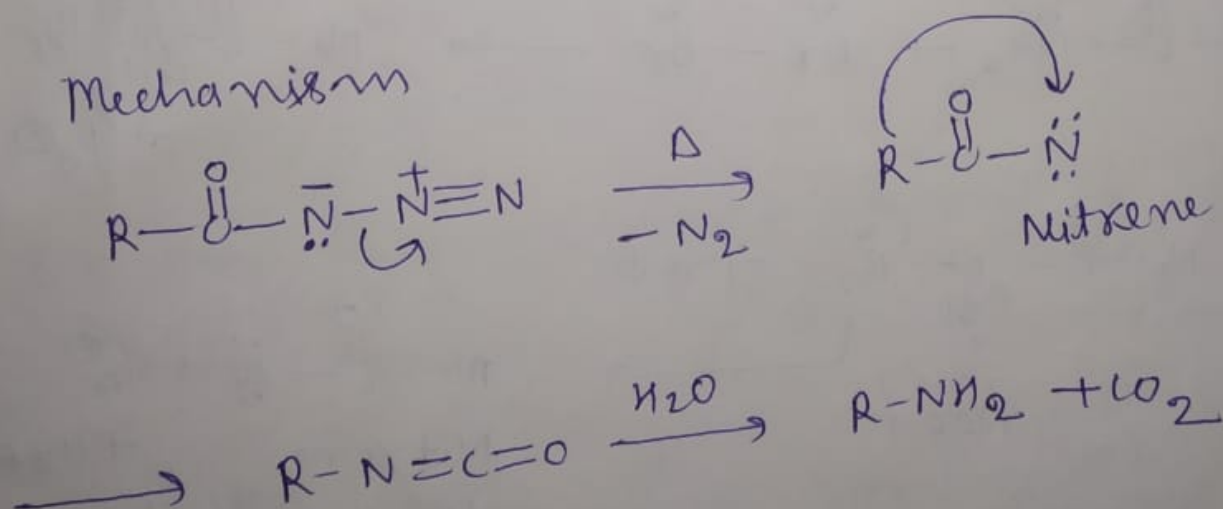 Mechanism
R-C(=O)-N̄-N⁺≡N →(Δ, -N₂) R-C(=O)-N
Nitrene
→ R-N=C=O →(H₂O) R-NH₂ + CO₂